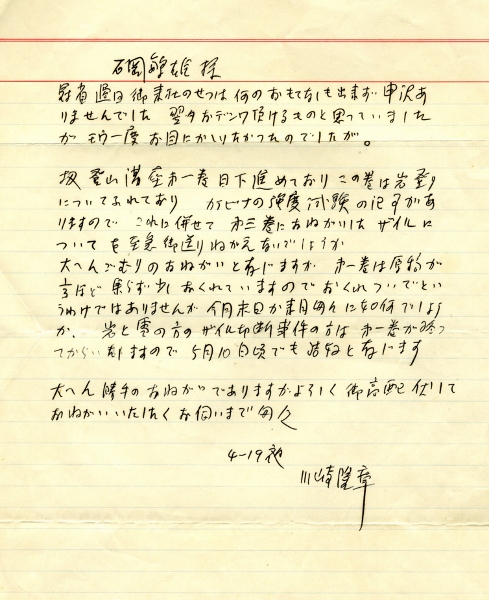 石岡繁雄様
冠省 過日御来社のせつは何のおもてなしも出来ず申沢あ
りませんでした 翌夕かデンワ頂けるものと思っていました
が もう一度お目にかかりたかったのでしたが。
扨 登山講座第一巻目下進めており この巻は岩登り
についてふれており カラビナの強度試験の記事があ
りますので これに併せて 第三巻におねがいした ザイルに
ついても至急御送りねがえないでしょうか
大へんごむりのおねがいと存じますが 第一巻は原稿が
言ほど集らず少しおくれていますので おくれついでとい
うわけではありませんが 今月末日か来月匆々に如何でしょう
か、 岩と雪の方のザイル切断事件の方は 第一巻が終っ
てからに致しますので 5月10日頃でも結構と存じます
大へん勝手のおねがいでありますがよろしく御高配 伏して
おねがいいたしたく お伺いまで 匆々
4-19夜
川崎隆章